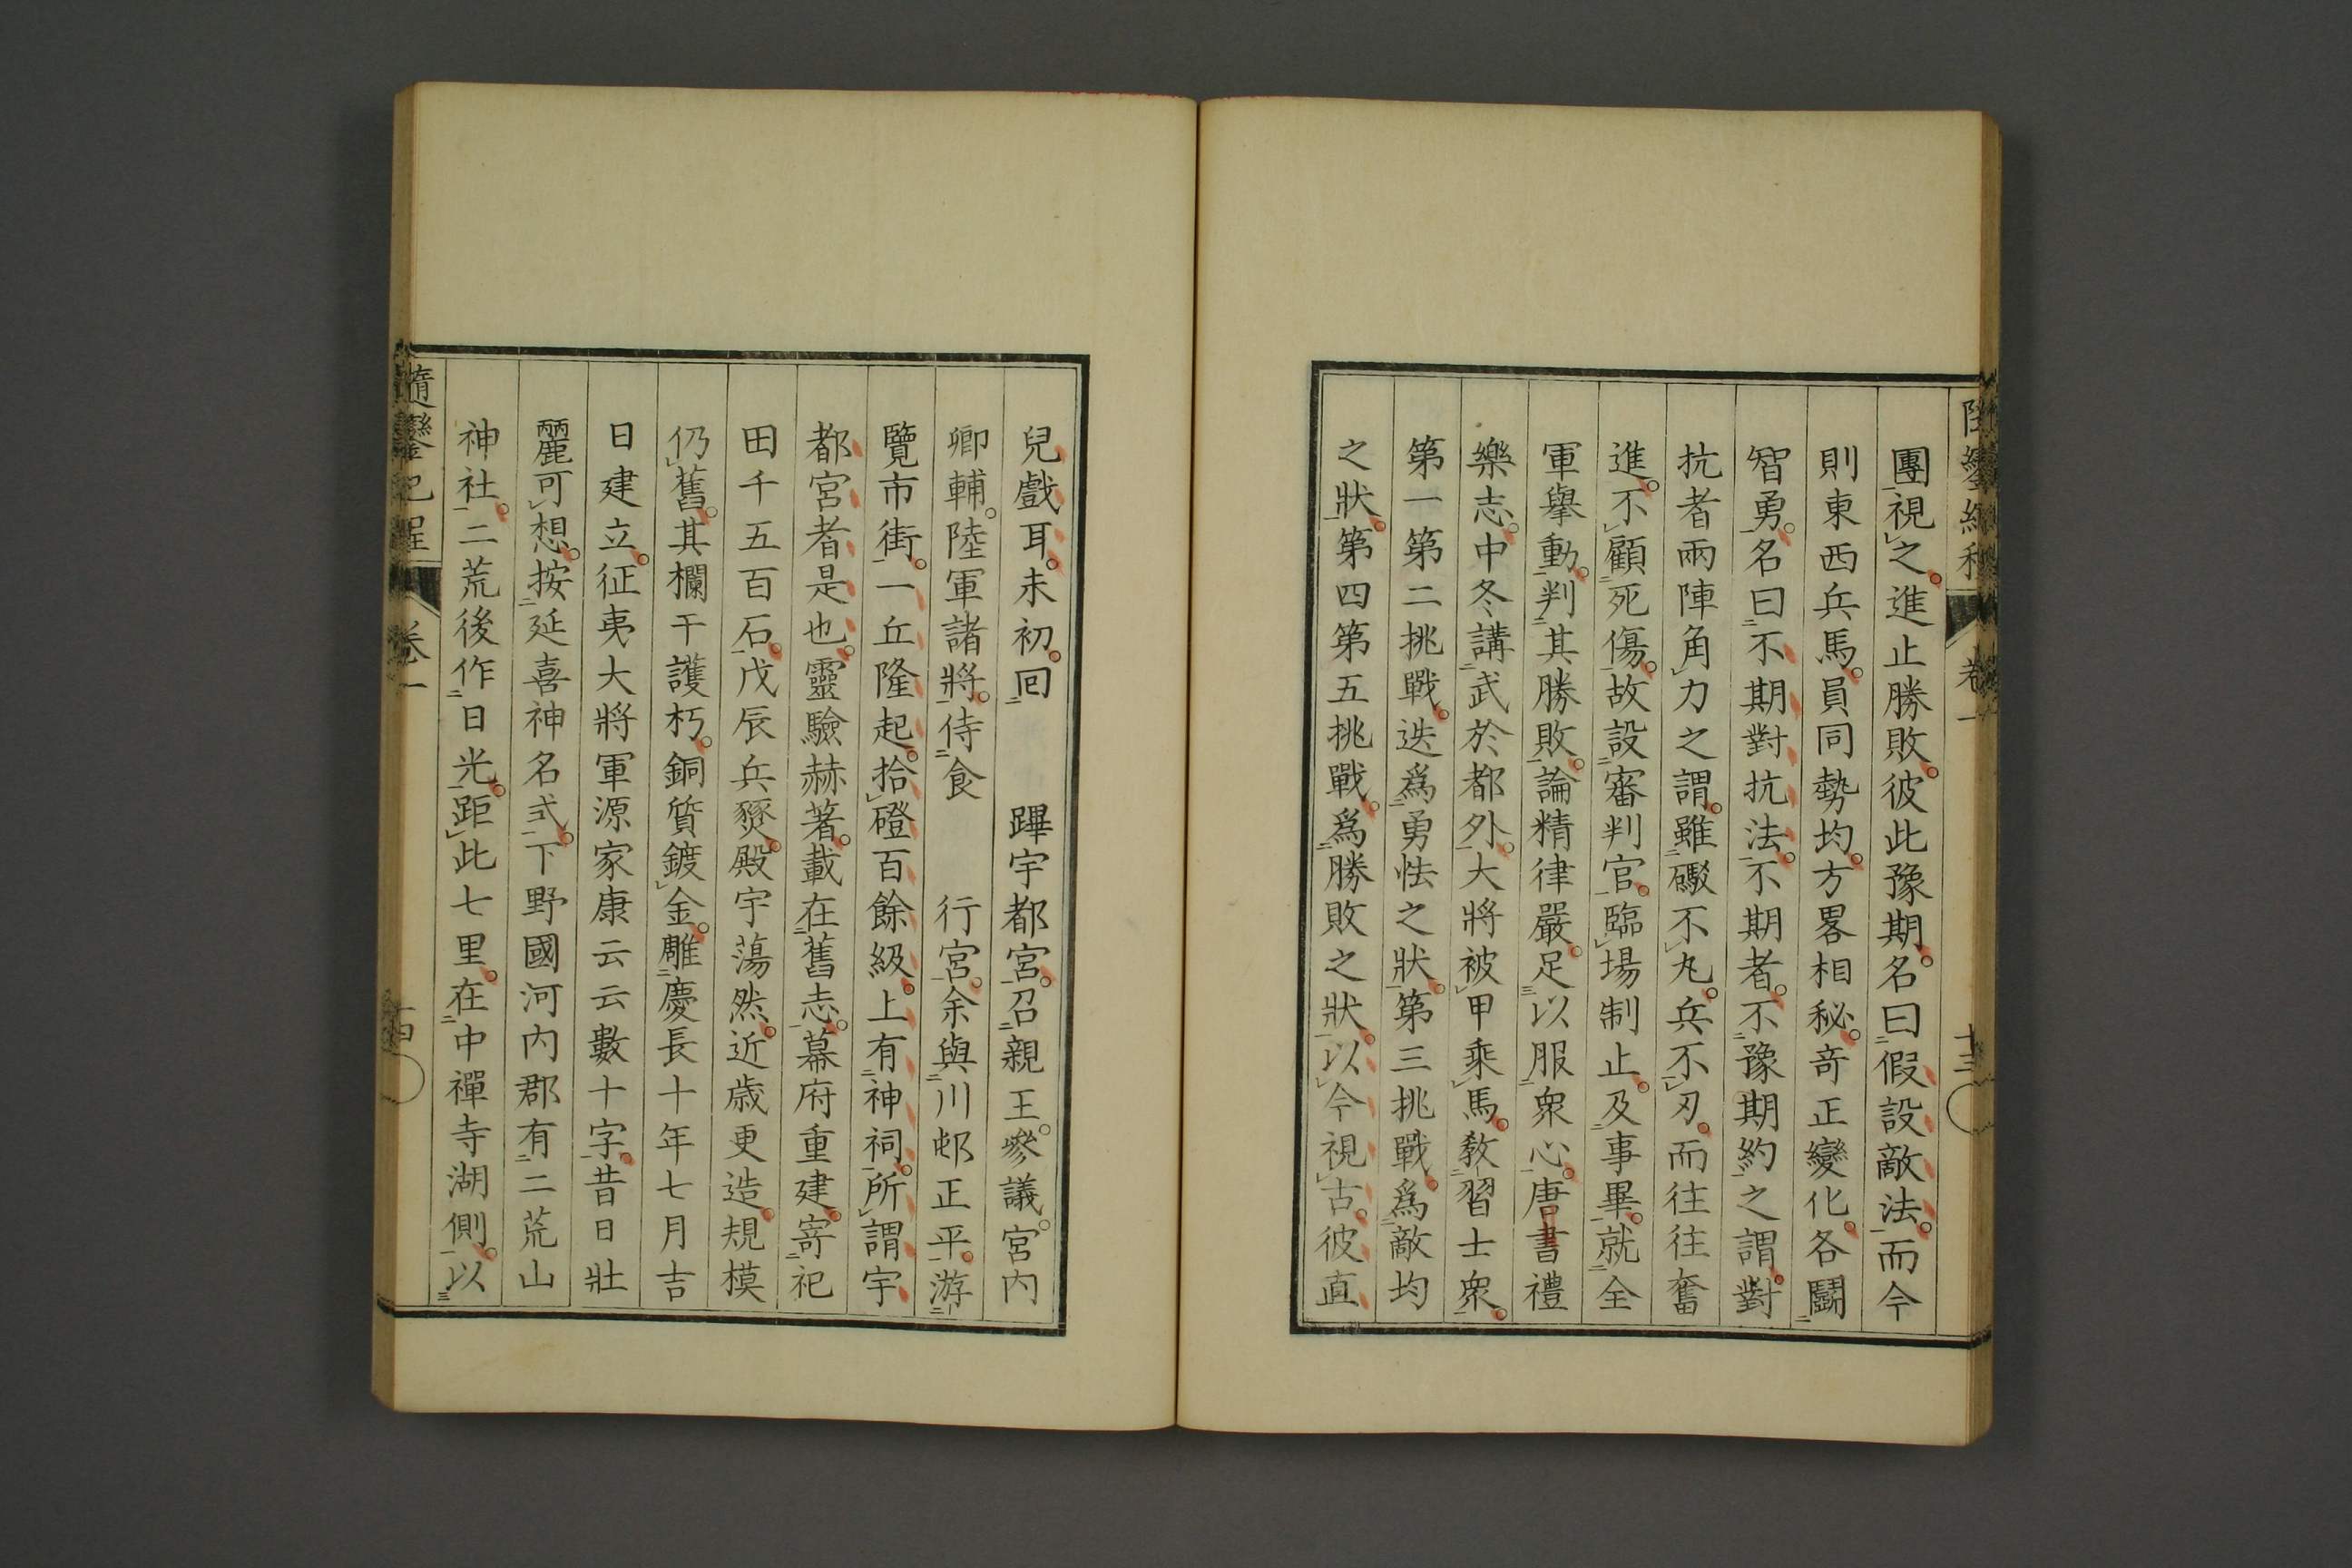 團視之。進止勝敗。彼此豫期。名曰假設敵法。而今
則東西兵馬。員同勢均。方畧相秘。奇正變化。各鬭
智勇。名曰不期對抗法。不期者。不豫期約之謂。對
抗者兩陣角力之謂。雖礮不丸。兵不刃。而往往奮
進。不顧死傷。故設審判官。臨場制止。及事畢。就全
軍擧動。判其勝敗。論精律嚴。足以服衆心。唐書禮
樂志。中冬講武於都外。大將被甲乘馬。敎習士衆。
第一第二挑戰。迭爲勇怯之狀。第三挑戰。爲敵均
之狀。第四第五挑戰。爲勝敗之狀。以今視古。彼直
兒戲耳。未初。回蹕宇都宮。召親王。參議。宮內
卿輔。陸軍諸將。侍食行宮。余與川邨正平。游
覽市街。一丘隆起。拾磴百餘級。上有神祠。所謂宇
都宮者是也。靈驗赫著。載在舊志。幕府重建。寄祀
田千五百石。戊辰兵燹。殿宇蕩然。近歲更造。規模
仍舊。其欄干護朽。銅質鍍金。雕慶長十年七月吉
日建立。征夷大將軍源家康云云數十字。昔日壯
麗可想。按延喜神名式。下野國河內郡有二荒山
神社。二荒後作日光。距此七里。在中禪寺湖側。以
隨鑾紀程 卷一 十四